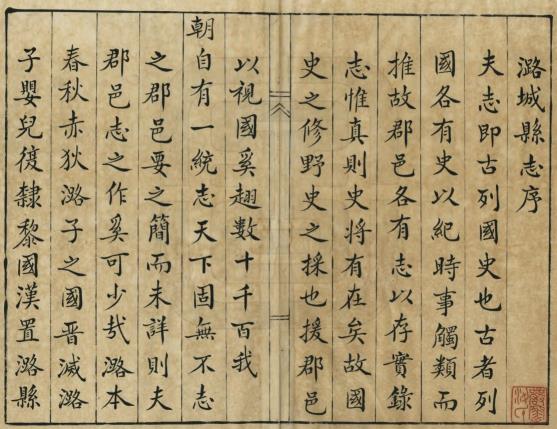 潞城縣志序
夫志即古列國史也古者列
國各有史以紀時事觸類而
推故郡邑各有志以存實錄
志惟真則史將有在矣故國
史之修野史之採也援郡邑
以視國奚翅數十千百我
朝自有一統志天下固無不志
之郡邑要之簡而未詳則夫
郡邑志之作奚可少哉潞本
春秋赤狄潞子之國晉滅潞
子嬰兒復隸黎國漢置潞縣